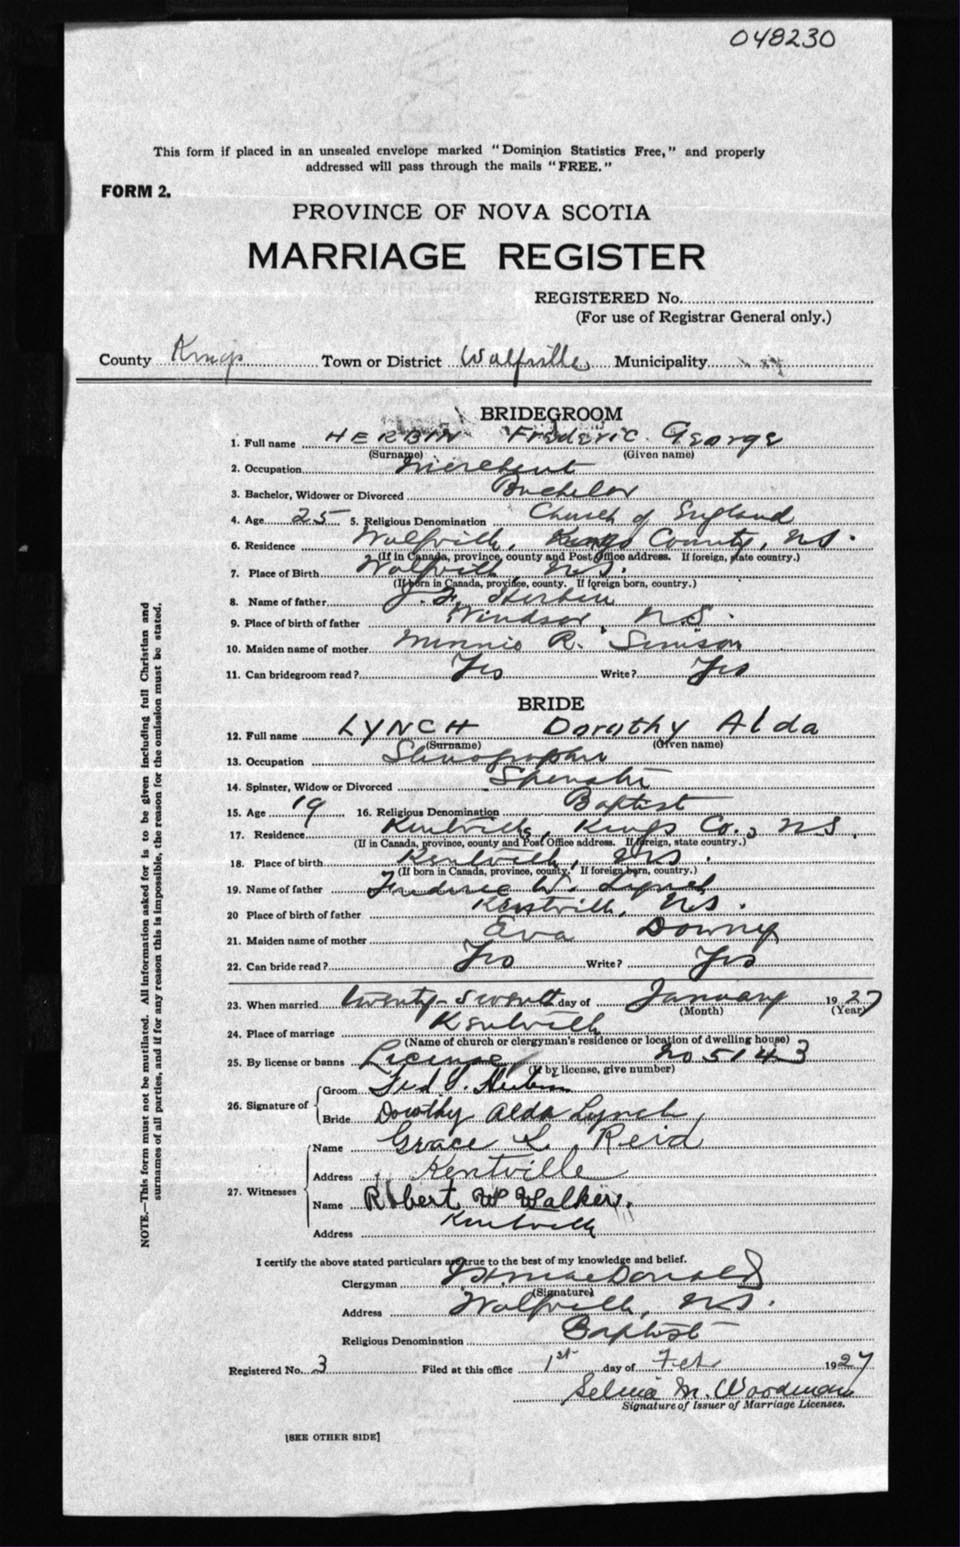 048230
This form if placed in an unsealed envelope marked "Dominion Statistics Free," and properly
addressed will pass through the mails "FREE."
FORM 2.
PROVINCE OF NOVA SCOTIA
MARRIAGE REGISTER
REGISTERED No.
(For use of Registrar General only.)
County Kings Town or District Wolfville Municipality
BRIDEGROOM
1. Full name HERBIN Frederic George
(Surname) (Given name)
2. Occupation merchant
3. Bachelor, Widower or Divorced Bachelor
4. Age 25 5. Religious Denomination Church of England
6. Residence Wolfville, Kings County, N.S.
(If in Canada, province, county and Post Office address. If foreign, state country.)
7. Place of Birth Wolfville N.S.
(If born in Canada, province, county. If foreign born, country.)
8. Name of father J. F. Herbin
9. Place of birth of father Windsor, N.S.
10. Maiden name of mother Minnie R. Simson
11. Can bridegroom read? Yes Write? Yes
BRIDE
12. Full name LYNCH Dorothy Alda
(Surname) (Given name)
13. Occupation Stenographer
14. Spinster, Widow or Divorced Spinster
15. Age 19 16. Religious Denomination Baptist
17. Residence Kentville, Kings Co., N.S.
(If in Canada, province, county and Post Office address. If foreign, state country.)
18. Place of birth Kentville, N.S.
(If born in Canada, province, county. If foreign born, country.)
19. Name of father Frederic W. Lynch
20 Place of birth of father Kentville, N.S.
21. Maiden name of mother Eva Downy
22. Can bride read? Yes Write? Yes
23. When married twenty-seventh day of January 1927
(Month) (Year)
24. Place of marriage Kentville
(Name of church or clergyman's residence or location of dwelling house)
25. By license or banns License No 5143
(If by license, give number)
26. Signature of Groom Fred G. Herbin
Bride Dorothy Alda Lynch
27. Witnesses Name Grace L. Reid
Address Kentville
Name Robert W Walker.
Address Kentville
I certify the above stated particulars are true to the best of my knowledge and belief.
Clergyman MacDonald
(Signature)
Address Wolfville, N.S.
Religious Denomination Baptist
Registered No. 3 Filed at this office 1st day of Feb 1927
Selina M. Woodman
Signature of Issuer of Marriage Licenses.
[SEE OTHER SIDE]
NOTE.—This form must not be mutilated. All information asked for is to be given including full Christian and
surnames of all parties, and if for any reason this is impossible, the reason for the omission must be stated.